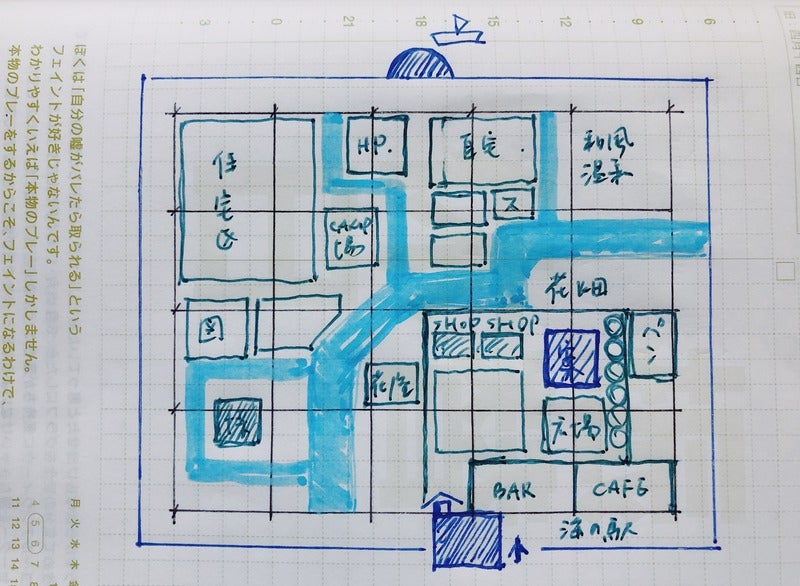 3
0
21
18
15
12
9
6
ぼくは「自分の嘘がバレたら取られる」という
フェイントが好きじゃないんです。
わかりやすくいえば「本物のプレー」しかしません。
本物のプレーをするからこそ、フェイントになるわけで、
HP.
自宅
和風
温泉
住
宅
区
CAMP
場
ス
花畑
図
SHOP SHOP
花屋
広場
BAR
CAFE
海の駅
月 火 水 木 金
4 5 6 7 8
11 12 13 14